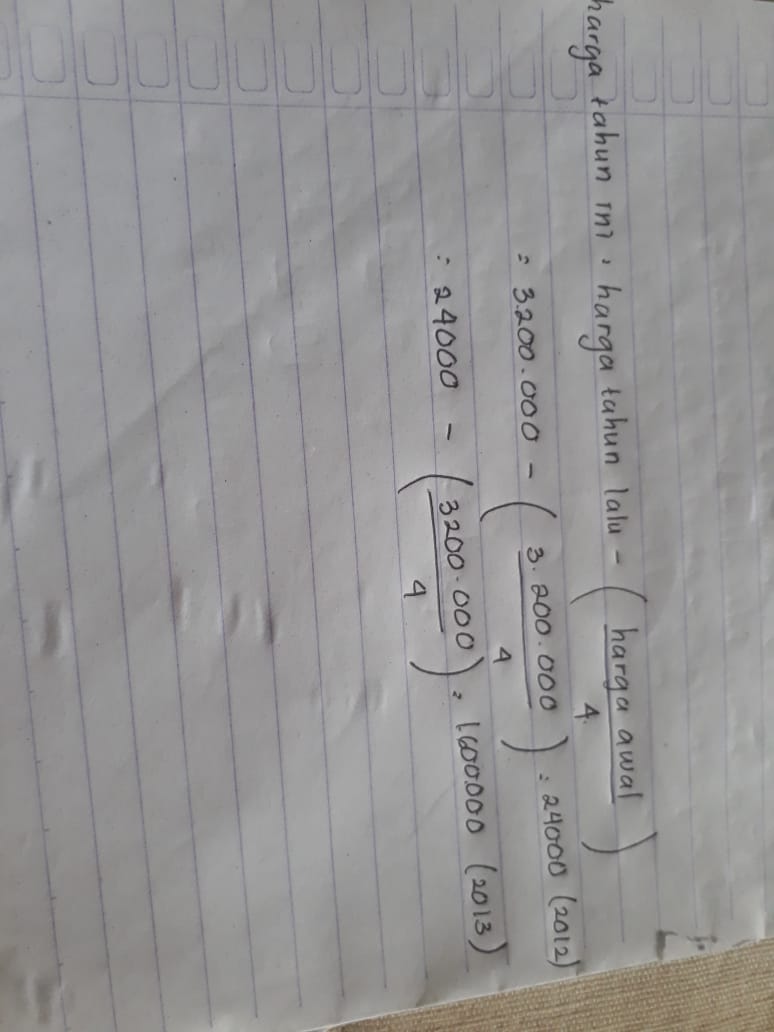 harga tahun ini : harga tahun lalu - (harga awal / 4)
= 3.200.000 - (3.200.000 / 4) = 24000 (2012)
= 24000 - (3200.000 / 4) = 1.600.000 (2013)